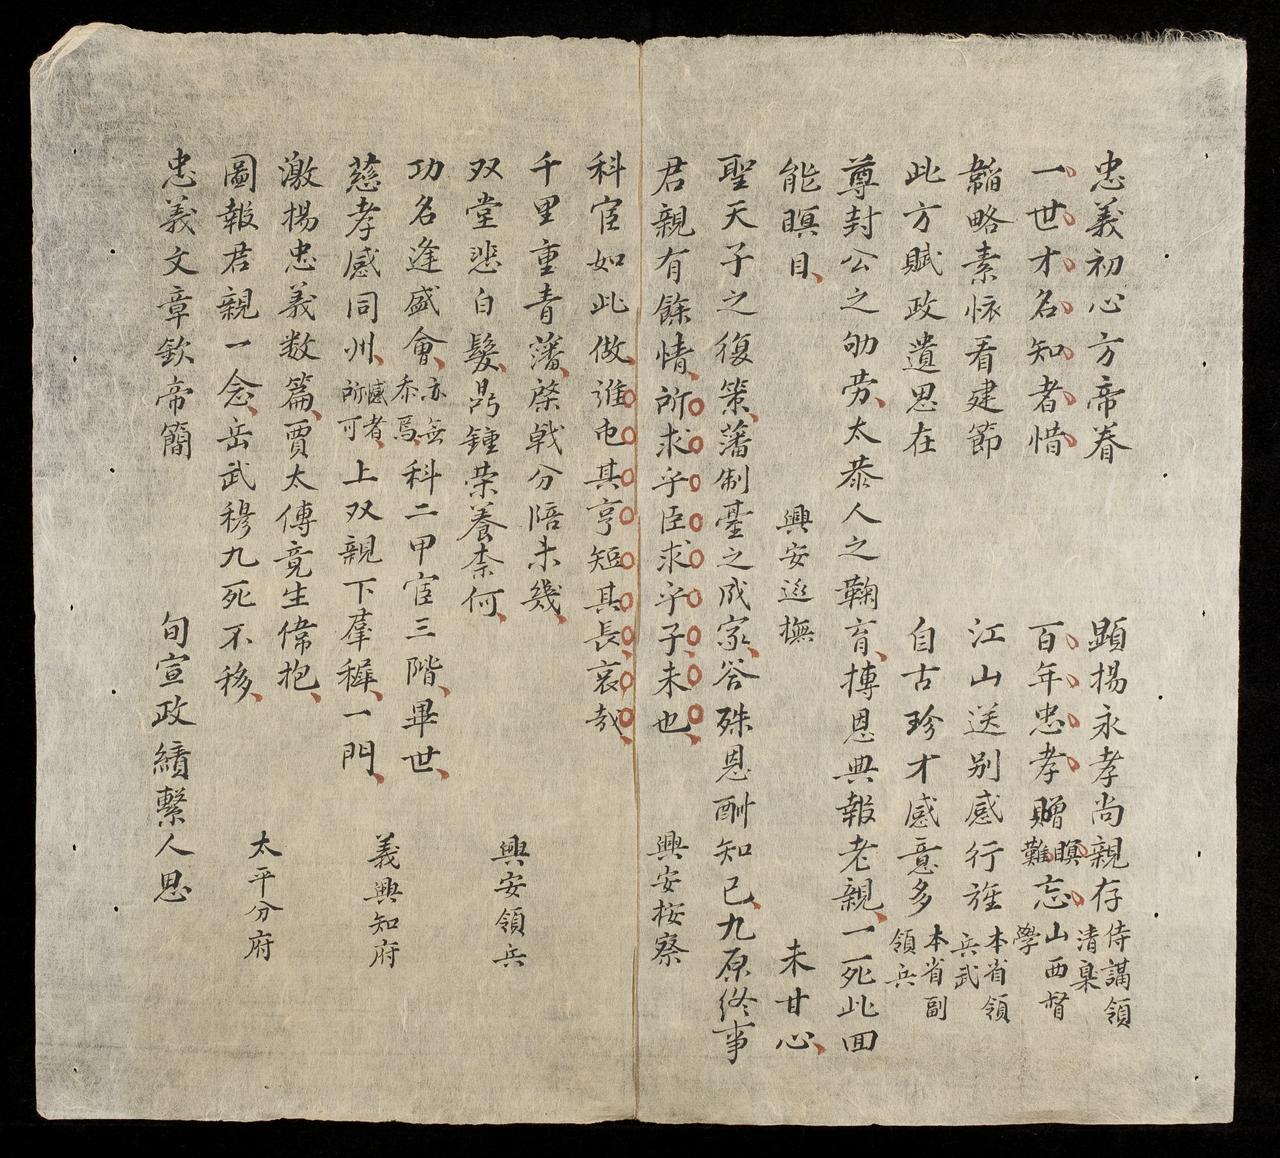 忠義初心方帝眷 顕揚永孝尚親存 侍講領清臬
一世才名知者惜 百年忠孝贈難瞑忘 山西督學
韜略素懷看建節 江山送别感行旌 本省領兵武
此方賦政遺思在 自古珍才感意多 本省副領兵
尊封公之劬劳太恭人之鞠育摶恩典報老親一死此回
能瞑目 興安巡撫 未甘心
聖天子之復策藩制臺之成家答殊恩酬知己九原終事
君親有餘情所求乎臣求乎子未也 興安按察
科宦如此做誰屯其亨短其長哀哉
千里重青藩棨戟分陪未幾
双堂悲白髮鼎鍾荣養柰何 興安領兵
功名逢盛會亦無忝焉科二甲宦三階畢世
慈孝感同州憾者所可上双親下羣穉一門 義興知府
激揚忠義数篇賈太傅竟生偉抱
圖報君親一念岳武穆九死不移 太平分府
忠義文章欽帝簡 旬宣政績繫人思